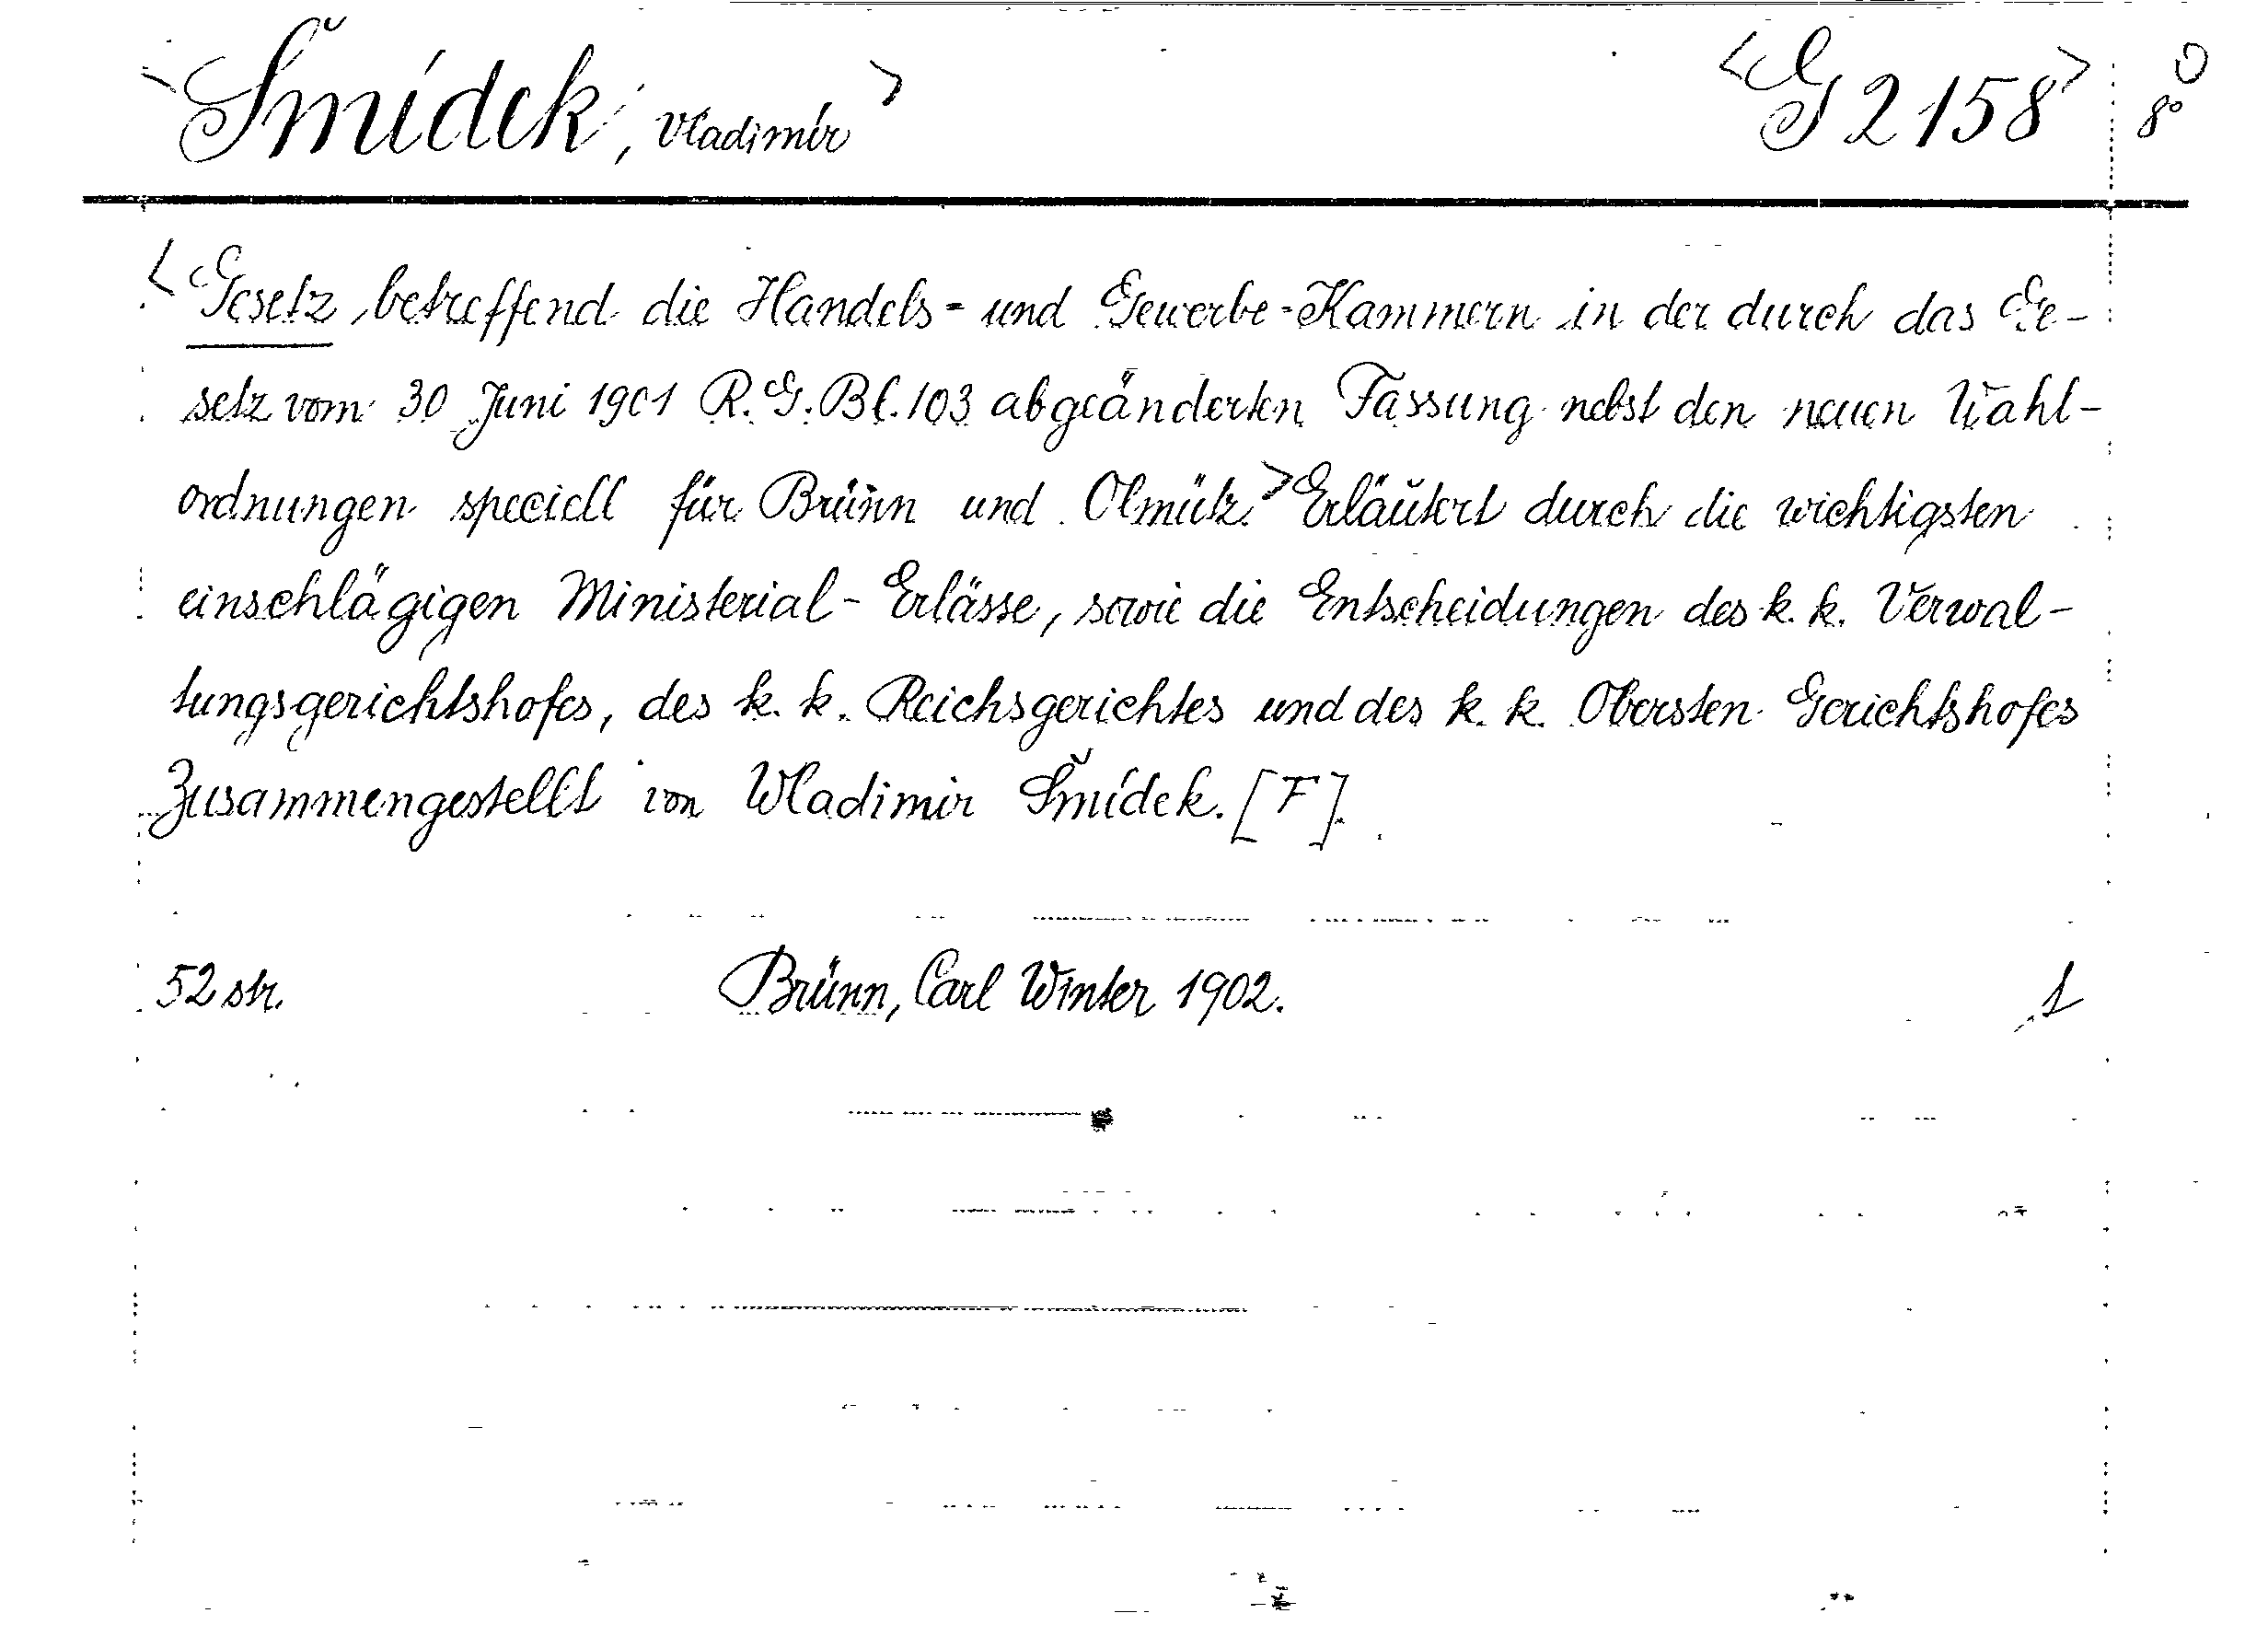 <Šmídek, Vladimír> <G 2158> O
8°
<Gesetz, betreffend die Handels- und Gewerbe-Kammern in der durch das Ge-
setz vom 30 Juni 1901 R. G. Bl. 103 abgeänderten Fassung nebst den neuen Wahl-
ordnungen speciell für Brünn und Olmütz.> Erläutert durch die wichtigsten
einschlägigen Ministerial-Erlässe, sowie die Entscheidungen des k. k. Verwal-
tungsgerichtshofes, des k. k. Reichsgerichtes und des k. k. Obersten Gerichtshofes
Zusammengestellt von Wladimir Šmídek. [F].
52 str. Brünn, Carl Winter 1902. 1